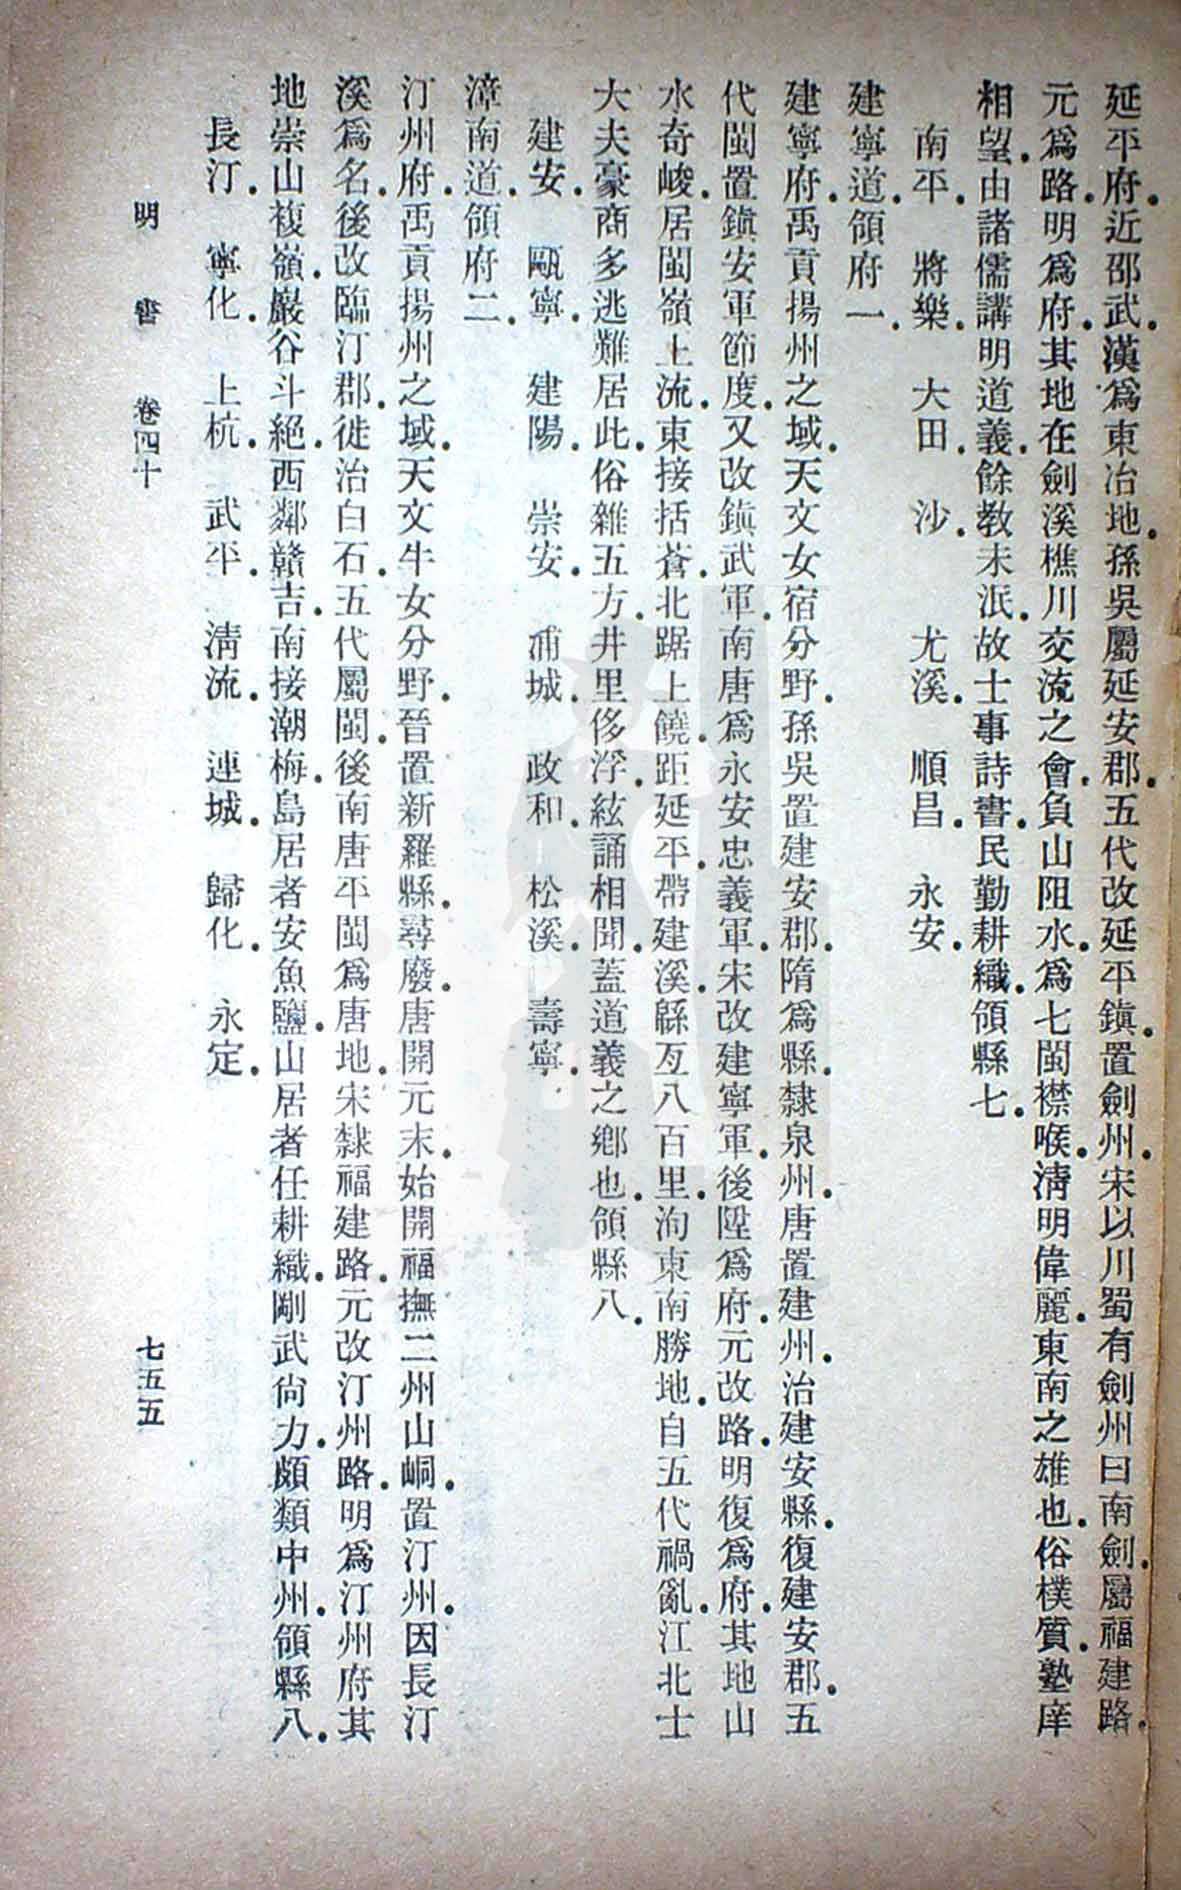 延平府．近邵武．漢爲東冶地．孫吳屬延安郡．五代改延平鎭．置劍州．宋以川蜀有劍州曰南劍．屬福建路．
元爲路．明爲府．其地在劍溪樵川交流之會．負山阻水．爲七閩襟喉．淸明偉麗．東南之雄也．俗樸質．塾庠
相望．由諸儒講明道義．餘敎未泯．故士事詩書．民勤耕織．領縣七．
南平．將樂．大田．沙．尤溪．順昌．永安．
建寧道．領府一．
建寧府．禹貢揚州之域．天文女宿分野．孫吳置建安郡．隋爲縣．隸泉州．唐置建州．治建安縣．復建安郡．五
代閩置鎭安軍節度．又改鎭武軍．南唐爲永安忠義軍．宋改建寧軍．後陞爲府．元改路．明復爲府．其地山
水奇峻．居閩嶺上流．東接括蒼．北踞上饒．距延平．帶建溪．緜亙八百里．洵東南勝地．自五代禍亂．江北士
大夫豪商多逃難居此．俗雜五方．井里侈浮．絃誦相聞．蓋道義之鄕也．領縣八．
建安．甌寧．建陽．崇安．浦城．政和．松溪．壽寧．
漳南道．領府二．
汀州府．禹貢揚州之域．天文牛女分野．晉置新羅縣．尋廢．唐開元末．始開福撫二州山峒．置汀州．因長汀
溪爲名．後改臨汀郡．徙治白石．五代屬閩．後南唐平閩爲唐地．宋隸福建路．元改汀州路．明爲汀州府．其
地崇山複嶺．巖谷斗絕．西鄰贛吉．南接潮梅．島居者安魚鹽．山居者任耕織．剛武尙力．頗類中州．領縣八．
長汀．寧化．上杭．武平．淸流．連城．歸化．永定．
明書　卷四十　七五五